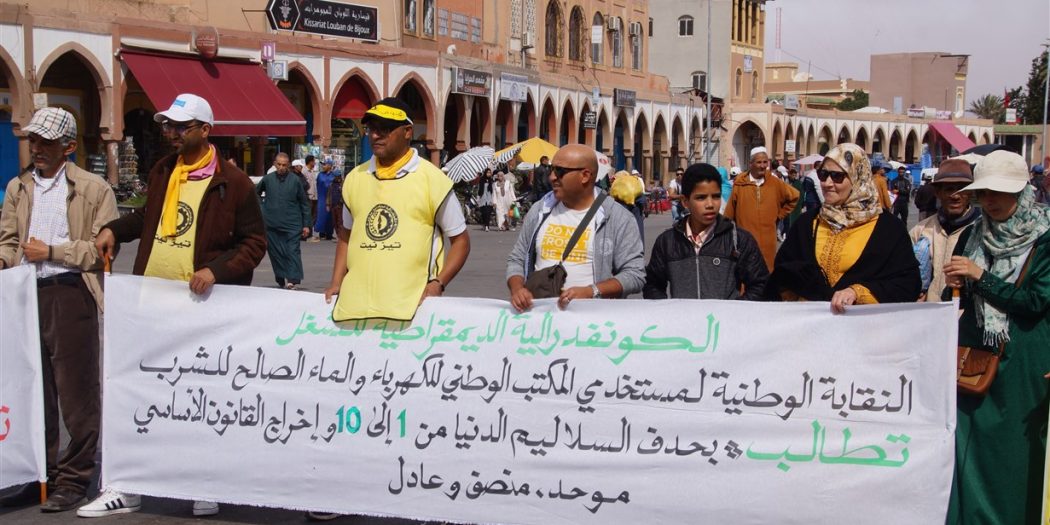 قيسارية اللوبان للمجوهرات
Kissariat Louban de Bijoux
تيزنيت
تيزنيت
الكونفدرالية الديمقراطية للشغل
النقابة الوطنية لمستخدمي المكتب الوطني للكهرباء والماء الصالح للشرب
تطالب * بحدف السلاليم الدنيا من 1 إلى 10 و إخراج القانون الأساسي
موحد، منصق وعادل